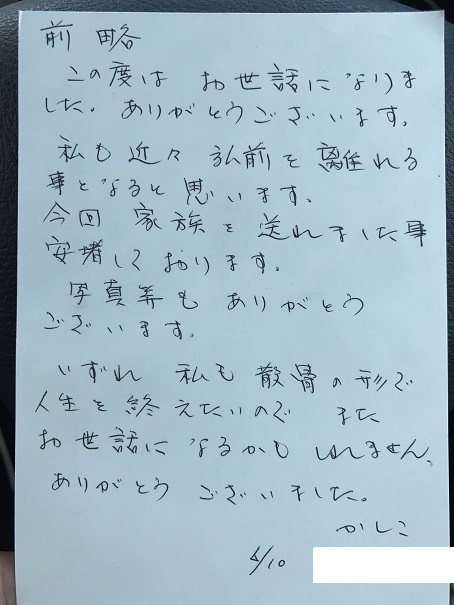 前略
この度は お世話になりま
した。ありがとうございます。
私も近々 弘前を離れる
事となると思います、
今回 家族を送れました事
安堵しております。
写真等もありがとう
ございます。
いずれ 私も散骨の形で
人生を終えたいので また
お世話になるかもしれません、
ありがとう ございました。
かしこ
4/10